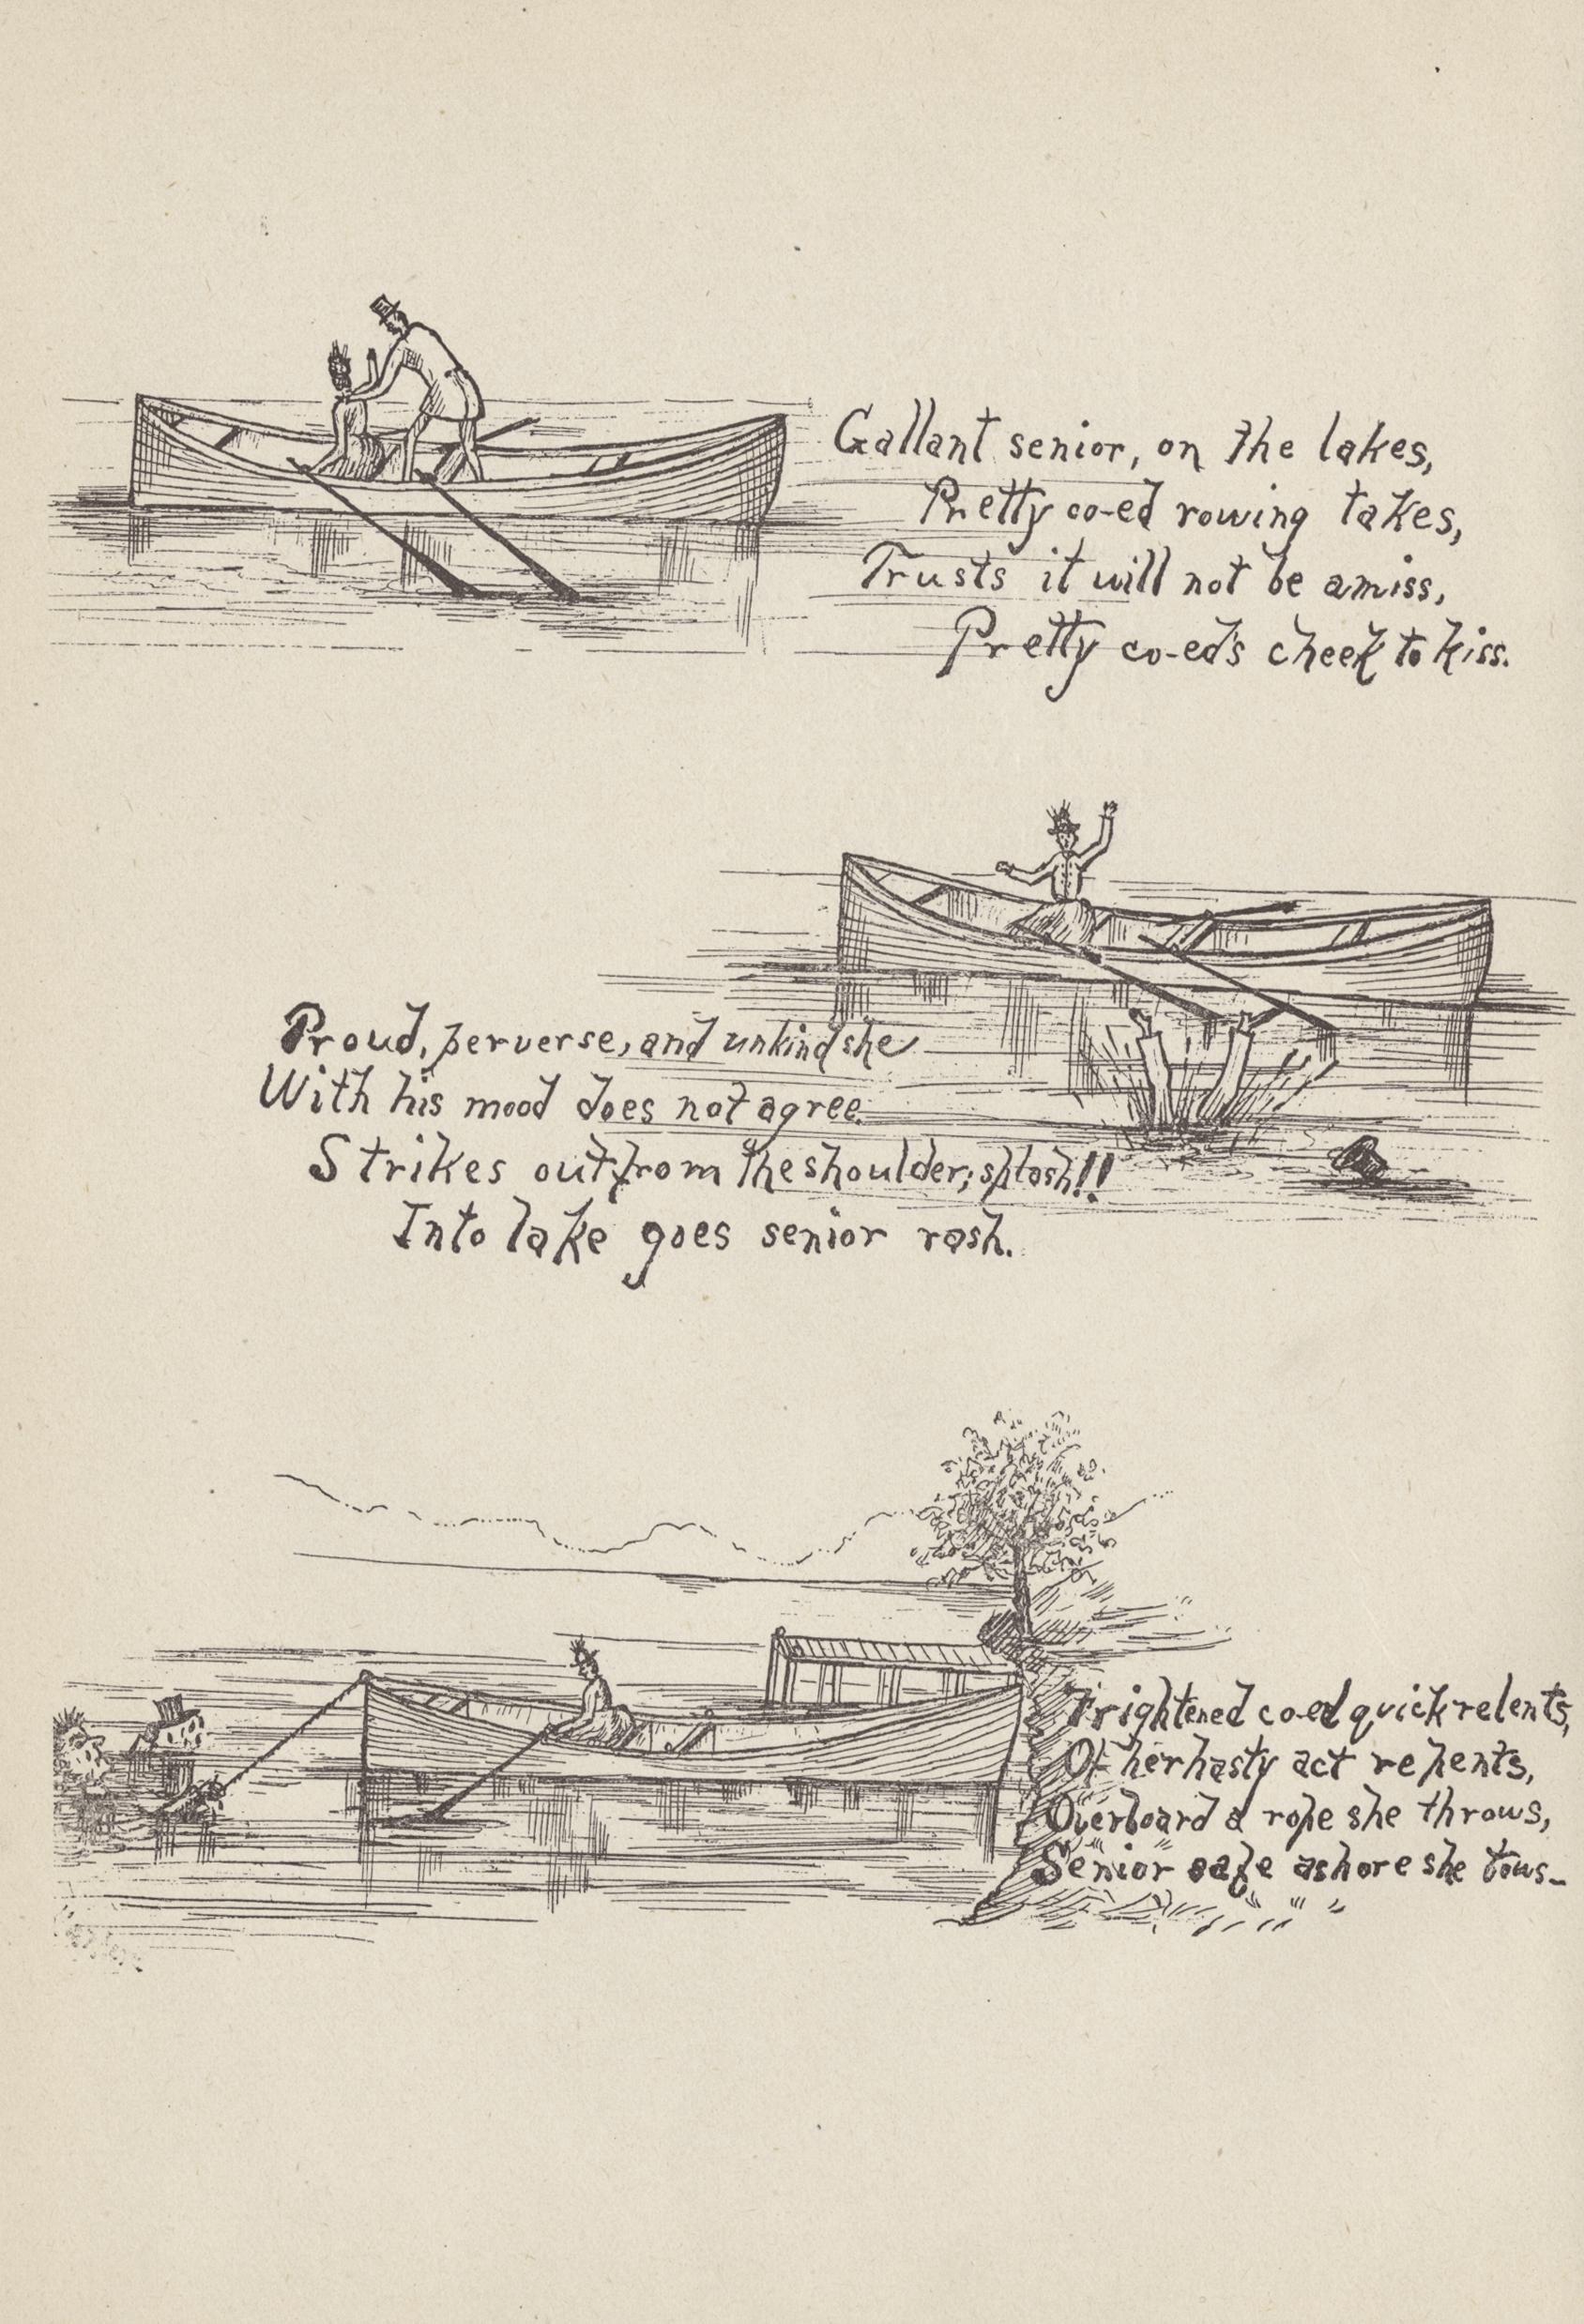 Gallant senior, on the lakes,
Pretty co-ed rowing takes,
Trusts it will not be amiss,
Pretty co-ed's cheek to kiss.
Proud, perverse, and unkind she
With his mood does not agree.
Strikes out from the shoulder; splash!!
Into lake goes senior rash.
Frightened co-ed quick relents,
Of her hasty act repents,
Overboard a rope she throws,
Senior safe ashore she tows-